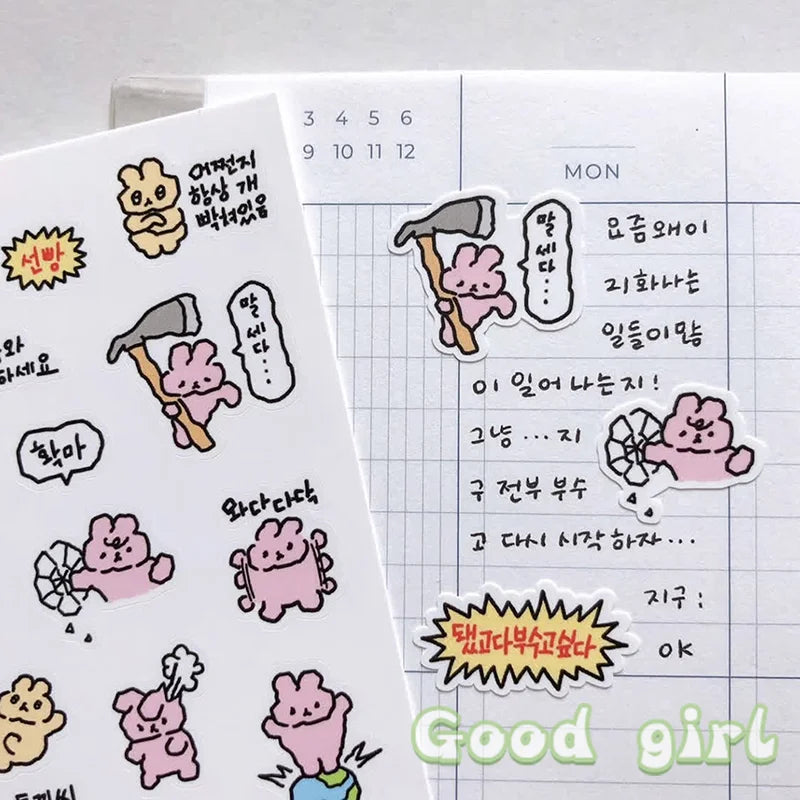 3 4 5 6
9 10 11 12
MON
어쩐지
항상 개
빡쳐있음
선빵
말
세
다...
하세요
확마
와다다닥
말
세
다...
요즘왜이
리화나는
일들이많
이 일어나는지!
그냥...지
구 전부 부수
고 다시 시작하자...
지구:
OK
됐고다부수고싶다
Good girl